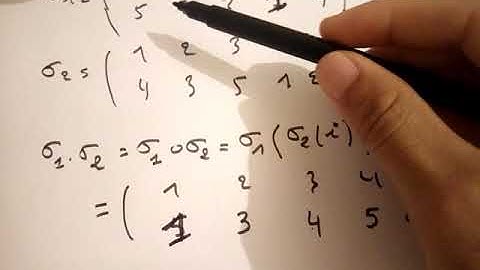 ( 5
σ2 = ( 1 2 3
4 3 5 1 2
σ1 . σ2 = σ1 o σ2 = σ1 ( σ2 ( i )
= ( 1 2 3 4
1 3 4 5